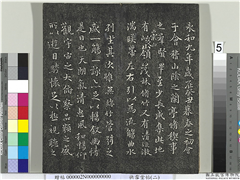 永和九年歲在癸丑暮春之初會
于會稽山陰之蘭亭脩稧事
也群賢畢至少長咸集此地
有崇山峻領茂林脩竹又有清流激
湍暎帶左右引以為流觴曲水
列坐其次雖無絲竹管弦之
盛一觴一詠亦足以暢敘幽情
是日也天朗氣清惠風和暢仰
觀宇宙之大俯察品類之盛
所以遊目騁懷足以極視聽之
5